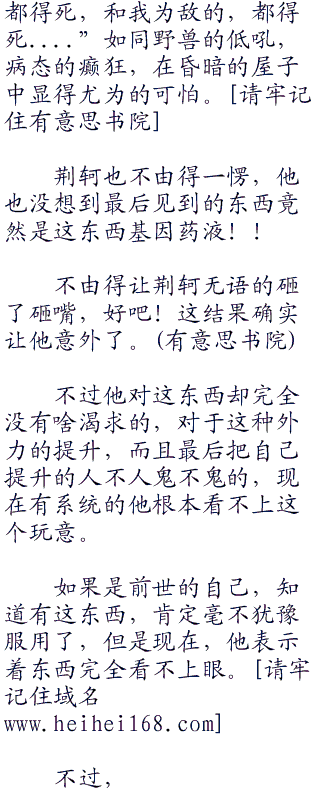 都得死，和我为敌的，都得
死....”如同野兽的低吼，
病态的癫狂，在昏暗的屋子
中显得尤为的可怕。[请牢记
住有意思书院]
荆轲也不由得一愣，他
也没想到最后见到的东西竟
然是这东西基因药液！！
不由得让荆轲无语的砸
了砸嘴，好吧！这结果确实
让他意外了。(有意思书院)
不过他对这东西却完全
没有啥渴求的，对于这种外
力的提升，而且最后把自己
提升的人不人鬼不鬼的，现
在有系统的他根本看不上这
个玩意。
如果是前世的自己，知
道有这东西，肯定毫不犹豫
服用了，但是现在，他表示
着东西完全看不上眼。[请牢
记住域名
www.heihei168.com]
不过，